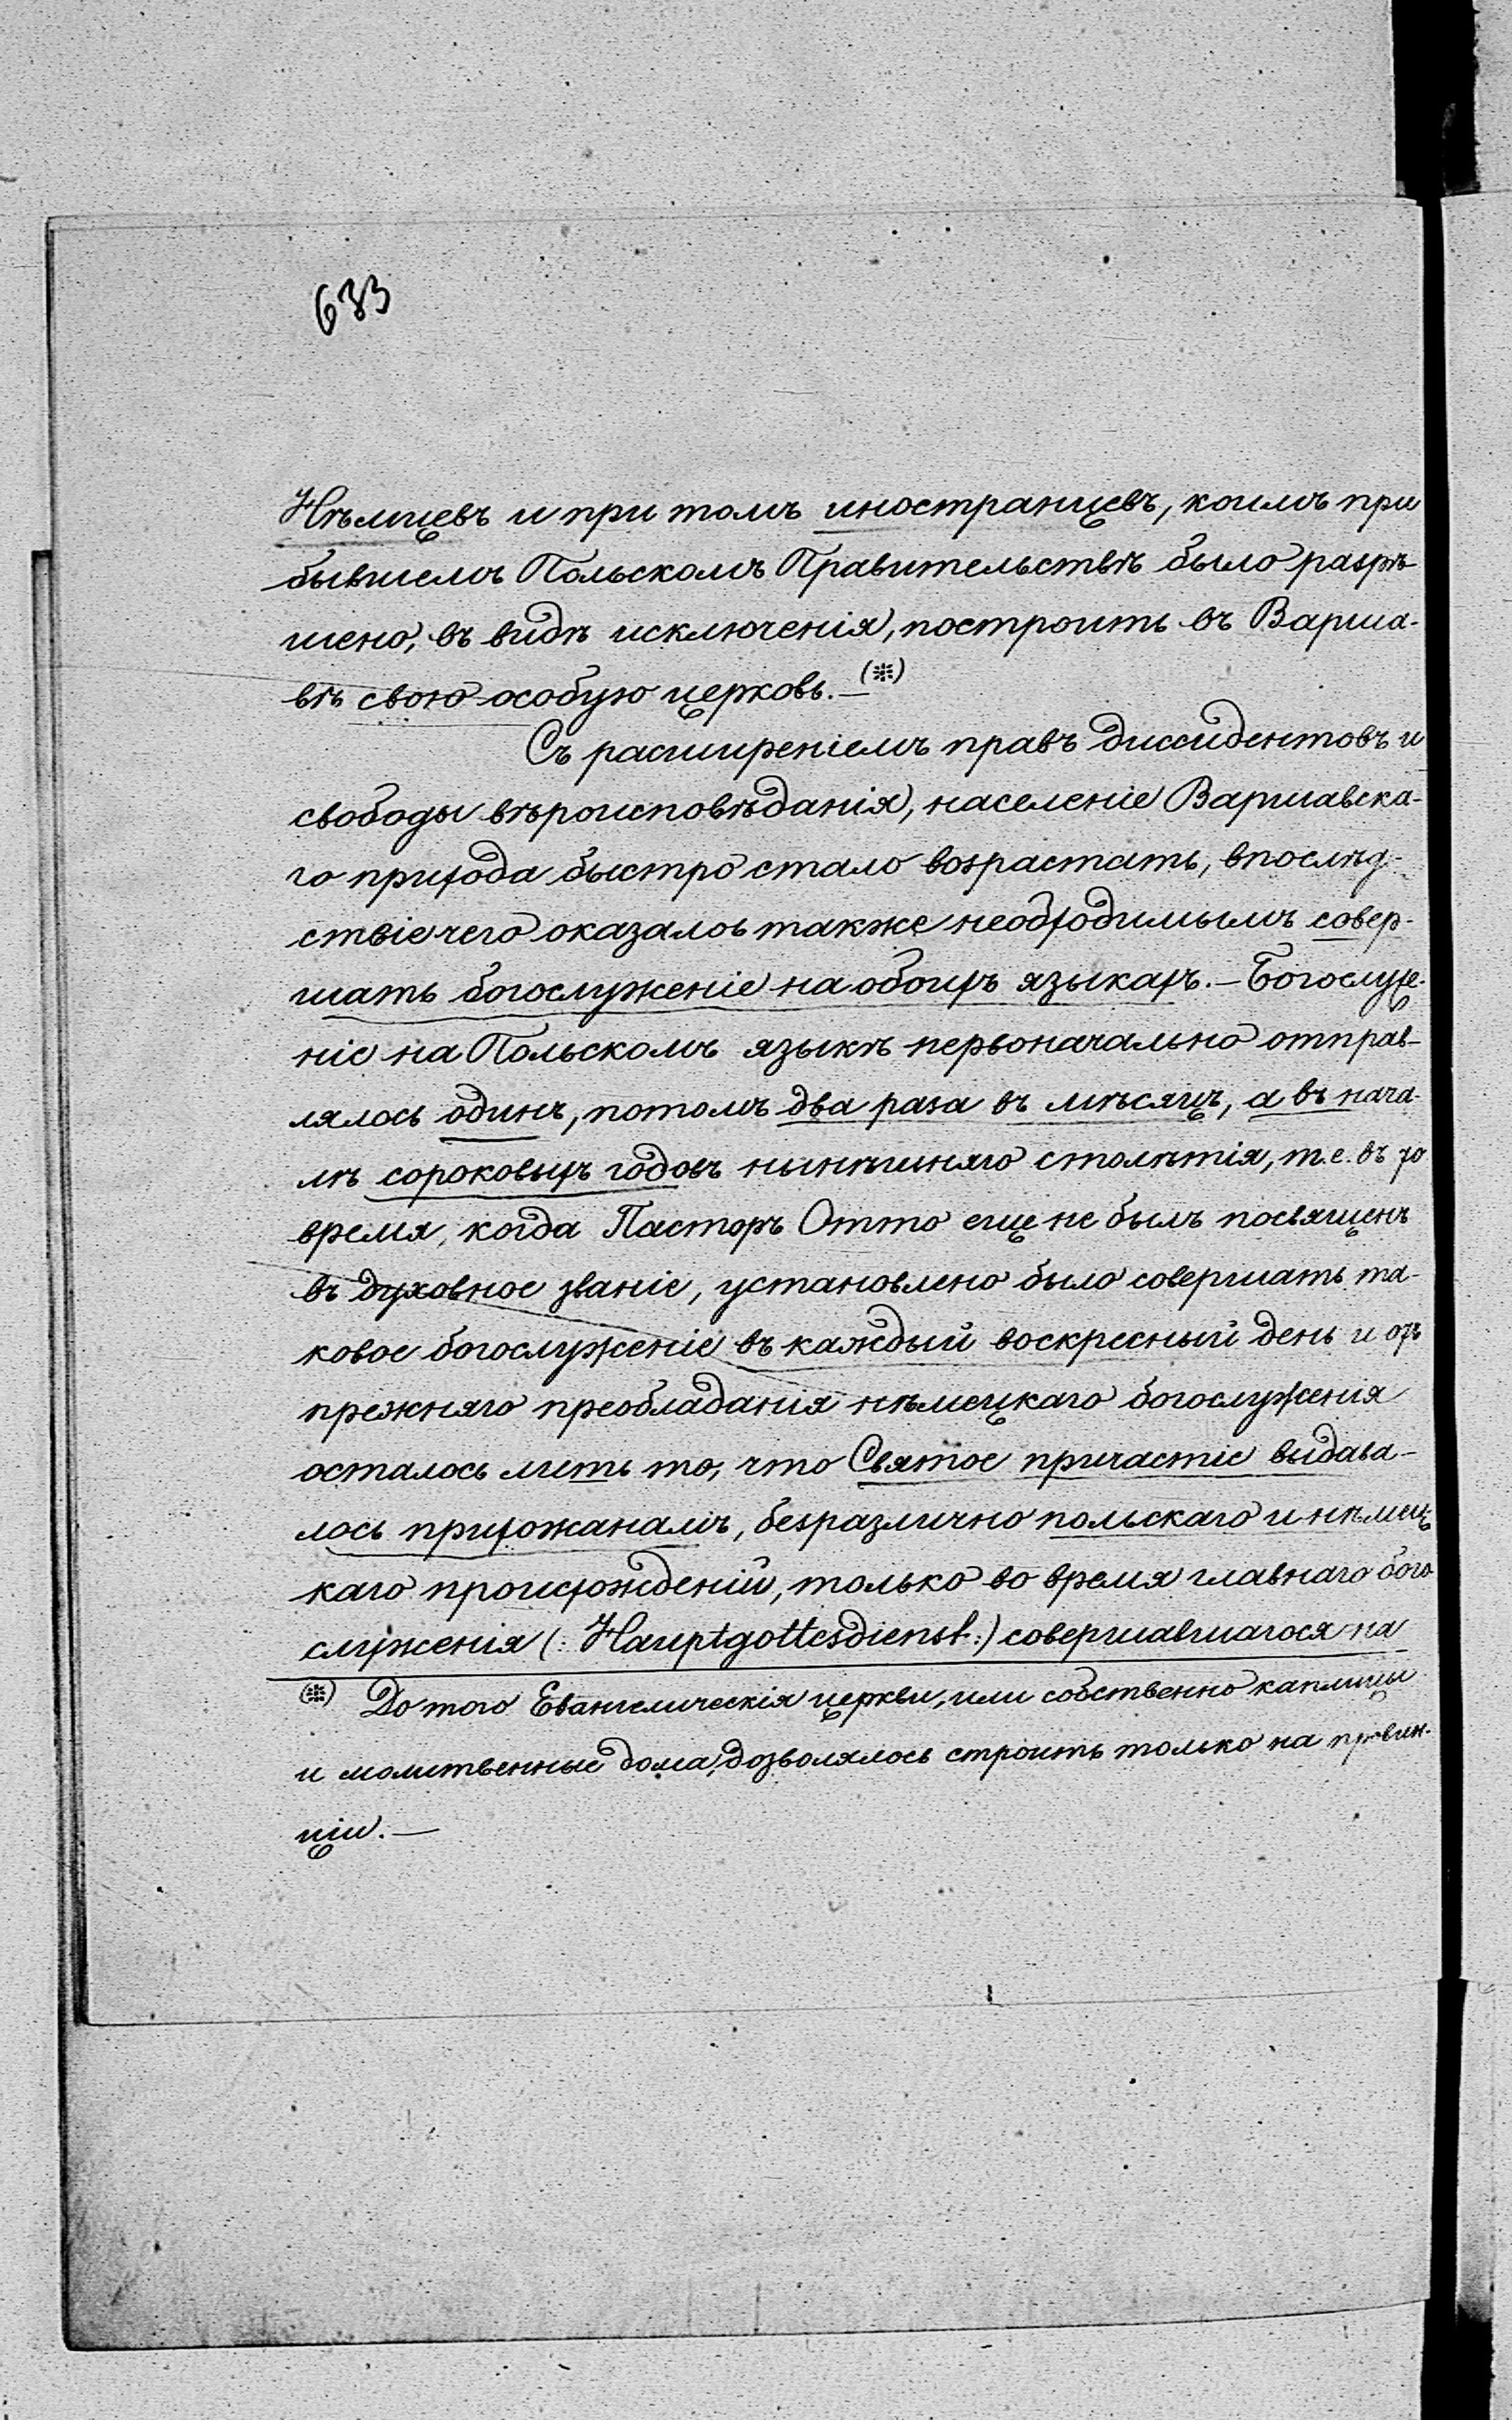 633
Нѣмцевъ и при томъ иностранцевъ, коимъ при
бывшемъ Польскомъ Правительствѣ было разрѣ-
шено, въ видѣ исключенія, построить въ Варша-
вѣ свою особую церковь.—(*)
Съ расширеніемъ правъ диссидентовъ и
свободы вѣроисповѣданія, населеніе Варшавска-
го прихода быстро стало возрастать, впослѣд-
ствіе чего оказалось также необходимымъ совер-
шать богослуженіе на обоихъ языкахъ.— Богослуже-
ніе на Польскомъ языкѣ первоначально отправ-
лялось одинъ, потомъ два раза въ мѣсяцъ, а въ нача-
лѣ сороковыхъ годовъ нынѣшняго столѣтія, т.е. въ то
время, когда Пасторъ Отто еще не былъ посвященъ
въ духовное званіе, установлено было совершать та-
ковое богослуженіе въ каждый воскресный день и отъ
прежняго преобладанія нѣмецкаго богослуженія
осталось лишь то, что Святое причастіе выдава-
лось прихожанамъ, безразлично польскаго и нѣмец
каго происхожденій, только во время главнаго бого
служенія (: Hauptgottesdienst :) совершавшагося на
(*) До того Евангелическія церкви, или собственно каплицы
и молитвенные дома, дозволялось строить только на провин-
ціи.—